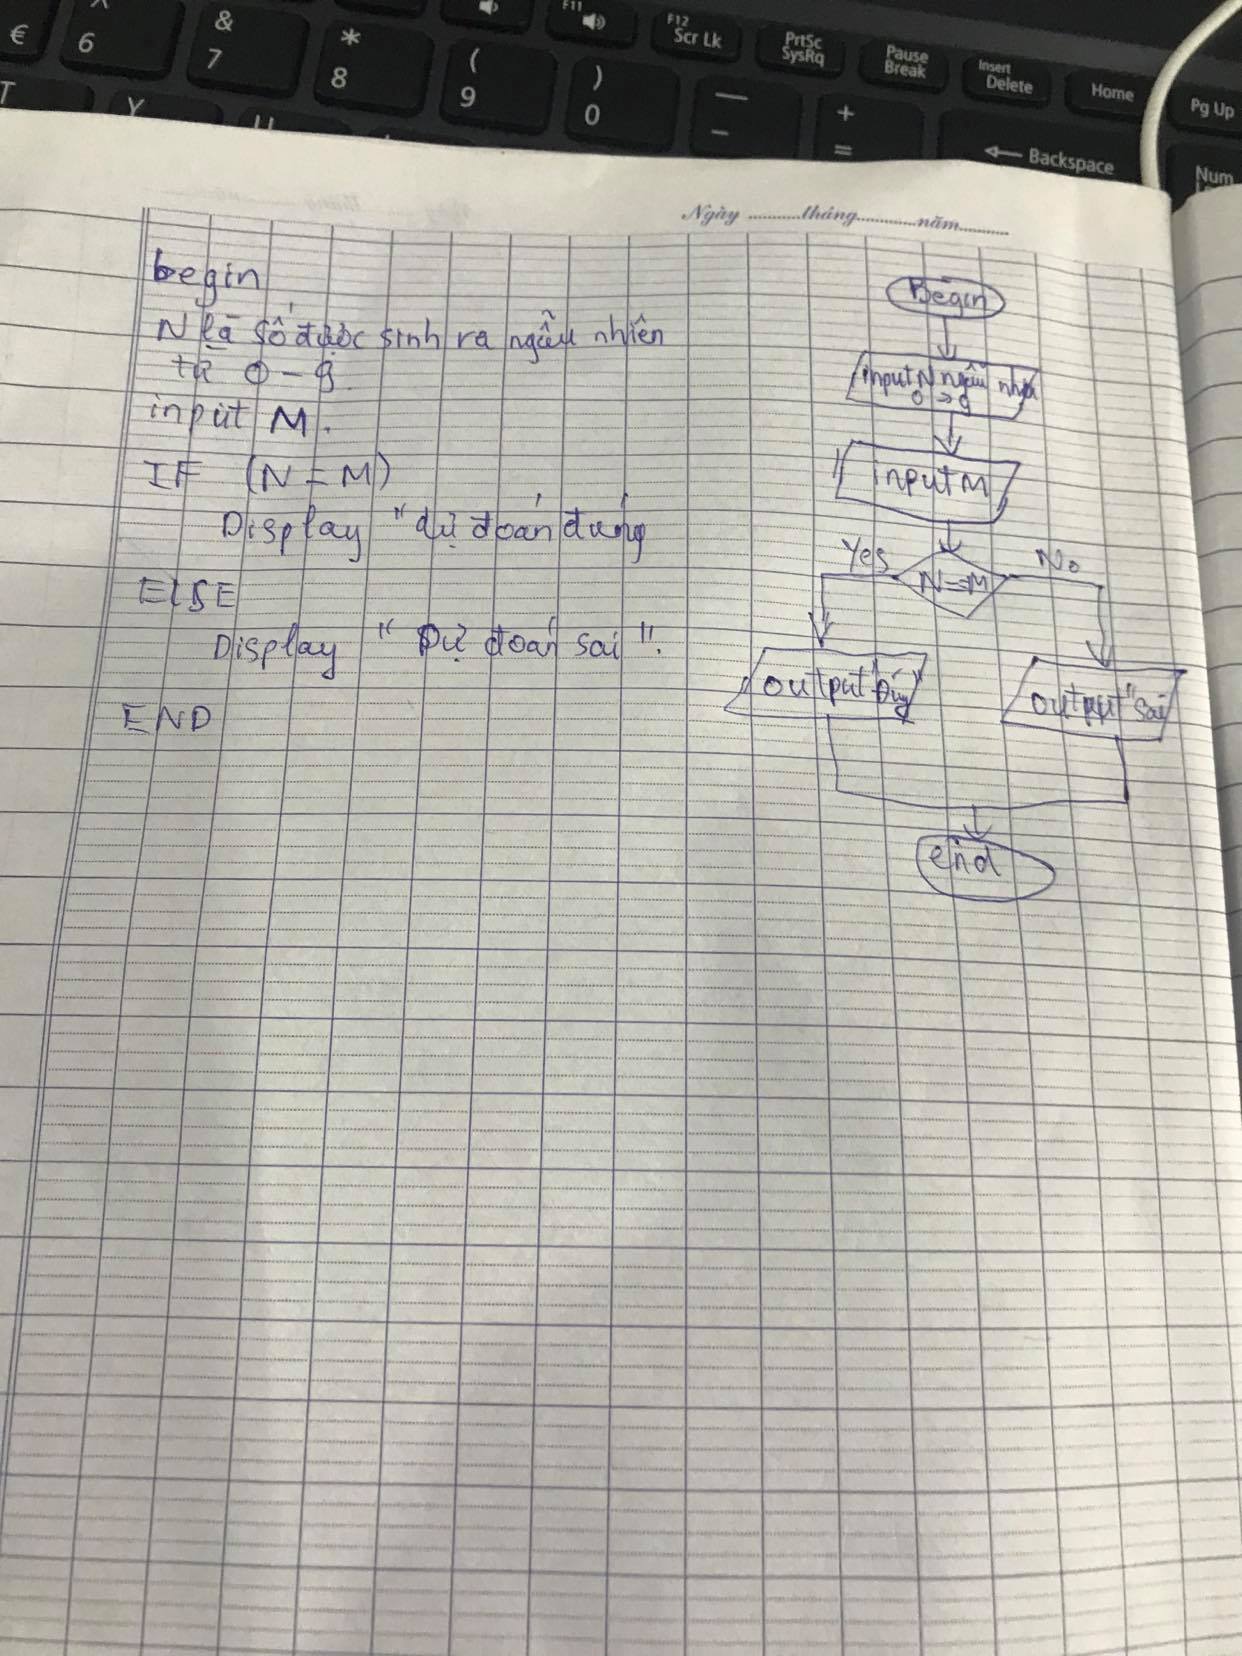 €
6
&
7
*
8
(
9
)
0
—
-
+
=
F11
F12
Scr Lk
PrtSc
SysRq
Pause
Break
Insert
Delete
Home
Pg Up
Backspace
Num
T
Y
U
Ngày ..........tháng..........năm..........
begin
N là số được sinh ra ngẫu nhiên
từ 0 - 9.
input M.
IF (N = M)
Display "dự đoán đúng
ELSE
Display "Dự đoán sai".
END
Begin
input N ngẫu nhiên
0 -> 9
input M
Yes
N==M
No
output "Đúng"
output "sai
end